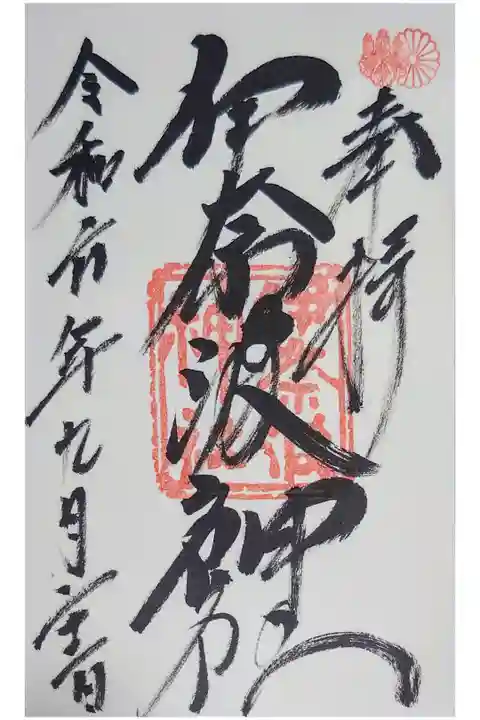 奉拝
伊奈波神社
令和元年九月 日